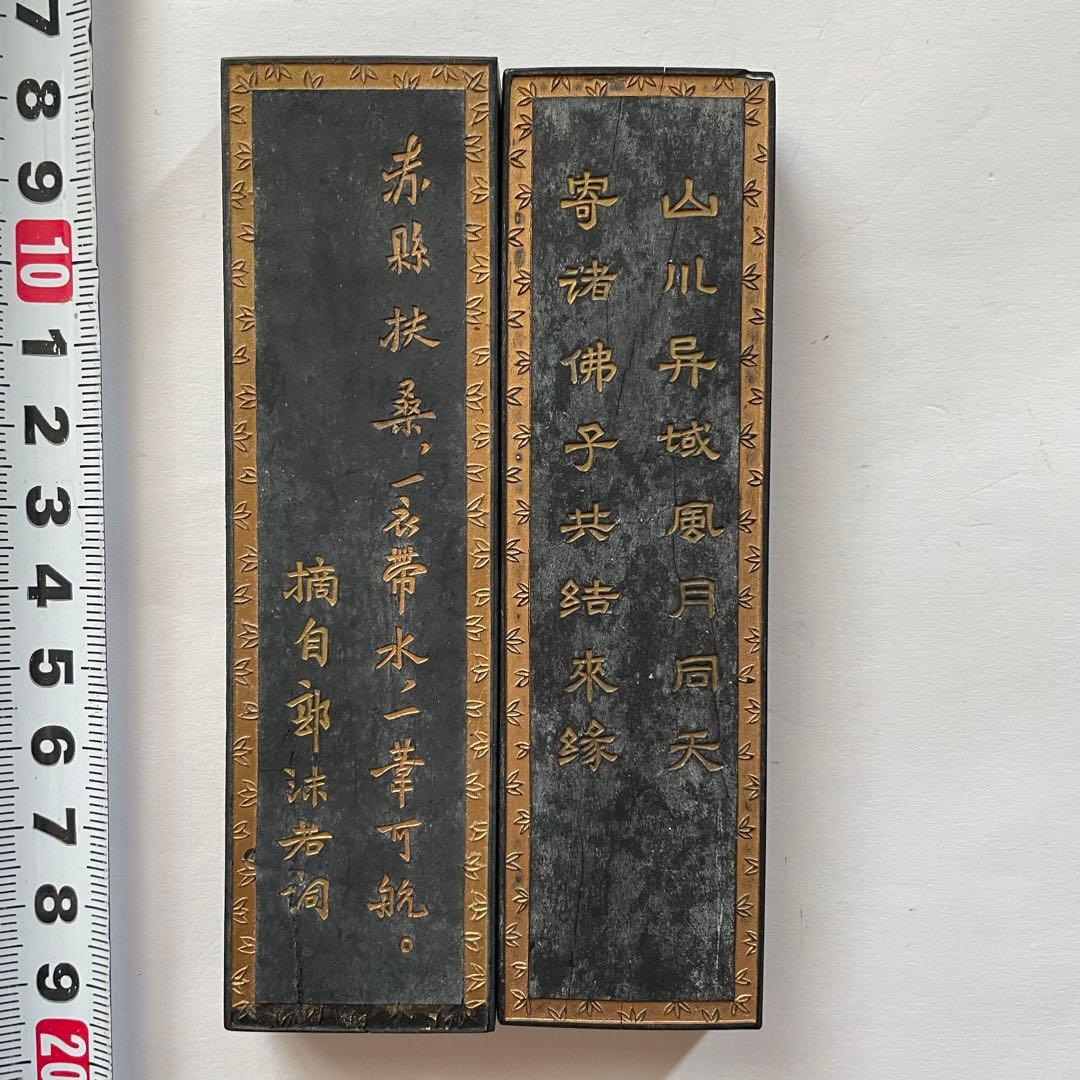 山川异域風月同天
寄诸佛子共结來缘
赤縣扶桑，一衣帶水，一葦可航。
摘自郭沫若词
7
8
9
10
1
2
3
4
5
6
7
8
9
20